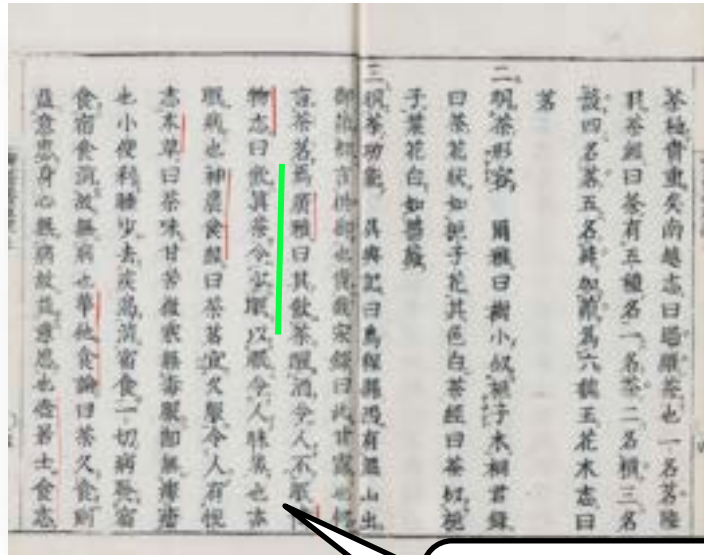 茶極貴重矣南越志曰過羅茶也一名茗陸
羽茶經曰茶有五種名一名茶二名檟三名
蔎四名茗五名荈加𦿆為六魏王花木志曰
茗
二明茶形容 爾雅曰樹小似梔子木桐君錄
曰茶花狀如梔子花其色白茶經曰茶似梔
子葉花白如薔薇
三明茶功能 吳興記曰烏程縣西有溫山出
御荈御言供御也貴哉宋錄曰此甘露也何
言茶茗焉廣雅曰其飲茶醒酒令人不眠博
物志曰飲眞茶令少眠以眠令人昧氣也亦
眠病也神農食經曰茶茗宜久服令人有悅
志本草曰茶味甘苦微寒無毒服即無瘻瘡
也小便利睡少去疾渴消宿食一切病發宿
食宿食消故無病也華他食論曰茶久食則
益意思身心無病故益意思也壺居士食志